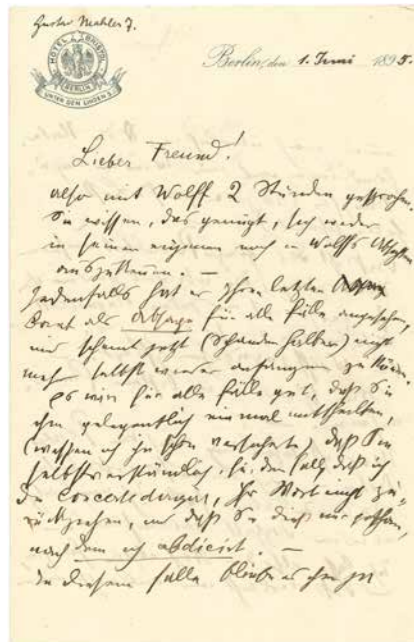 Gustav Mahler 7.
HÔTEL BRISTOL
BERLIN
UNTER DEN LINDEN 5
Berlin, den 1. Juni 1895.
Lieber Freund!
also mit Wolff 2 Stunden gesprochen.
Sie wissen, das genügt, sich weder
in seinen eigenen noch in Wolffs Absichten
auszukennen. —
Jedenfalls hat er Ihren letzten
Brief als Absage für alle Fälle angesehen,
und scheint jetzt (Schanden halber) nicht
mehr selbst wieder anfangen zu können.
Es wäre für alle Fälle gut, daß Sie
ihm gelegentlich einmal mittheilten,
(wessen ich ihn schon versicherte) daß Sie
selbstverständlich, für den Fall, daß ich
die Concerte dirigire, Ihr Wort nicht zu-
rückziehen, und daß Sie dieß nur gethan,
nachdem ich abdicirt. —
In diesem Falle bliebe es ihm ja